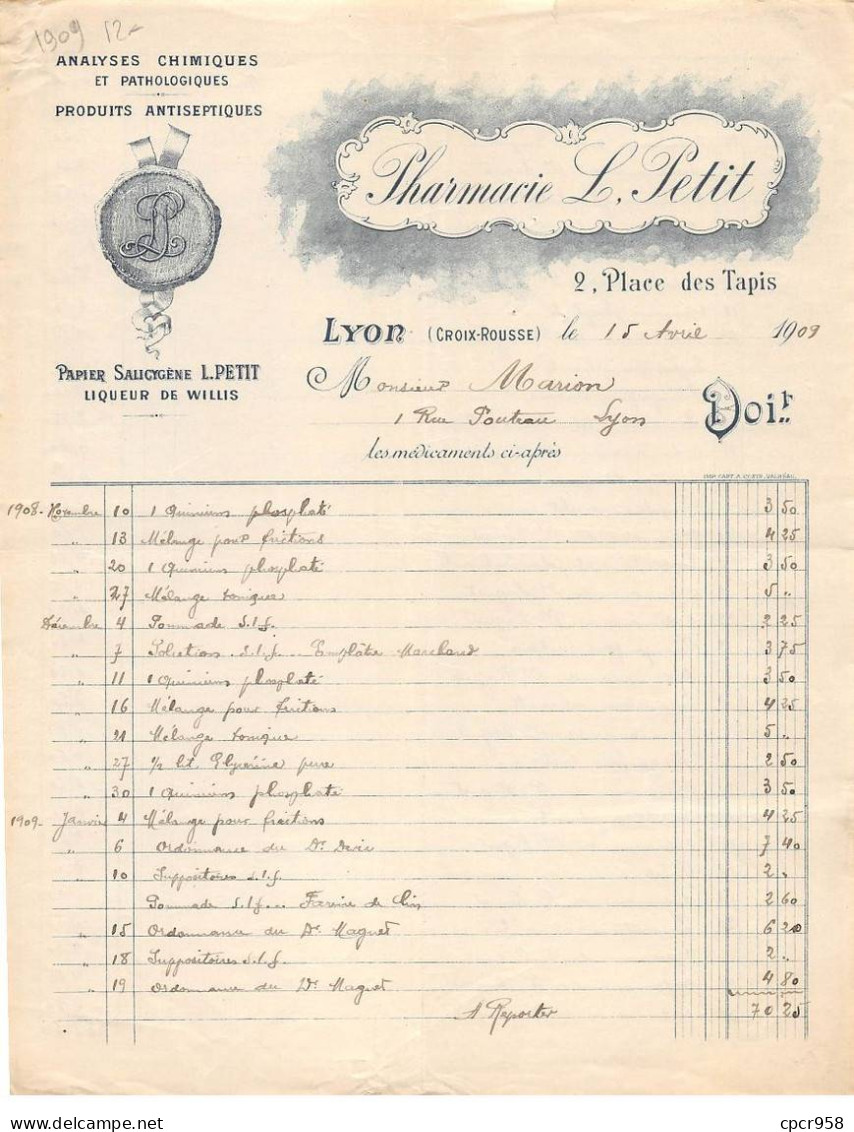 1909 12-
ANALYSES CHIMIQUES
ET PATHOLOGIQUES
PRODUITS ANTISEPTIQUES
LP
PAPIER SALICYGÈNE L. PETIT
LIQUEUR DE WILLIS
Pharmacie L. Petit
2, Place des Tapis
LYON (CROIX-ROUSSE) le 15 Avril 1909
Monsieur Marion Doit
1 Rue Pouteau Lyon
les médicaments ci-après
1908 - Novembre 10 1 Quinium phosphaté 3 50
" 13 Mélange pour frictions 4 25
" 20 1 Quinium phosphaté 3 50
" 27 Mélange tonique 5 "
Décembre 4 Pommade s.l.f. 2 25
" 7 s.l.f. Emplâtre Marchand 3 75
" 11 1 Quinium phosphaté 3 50
" 16 Mélange pour frictions 4 25
" 21 Mélange tonique 5 "
" 27 ½ lit. Glycérine pure 2 50
" 30 1 Quinium phosphaté 3 50
1909 - Janvier 4 Mélange pour frictions 4 25
" 6 Ordonnance du Dr 7 40
" 10 Suppositoires s.l.f. 2 "
Pommade s.l.f. Farine de Lin 2 60
" 15 Ordonnance du Dr Magnet 6 20
" 18 Suppositoires s.l.f. 2 "
" 19 Ordonnance du Dr Magnet 4 80
A Reporter 70 25
cpcr958